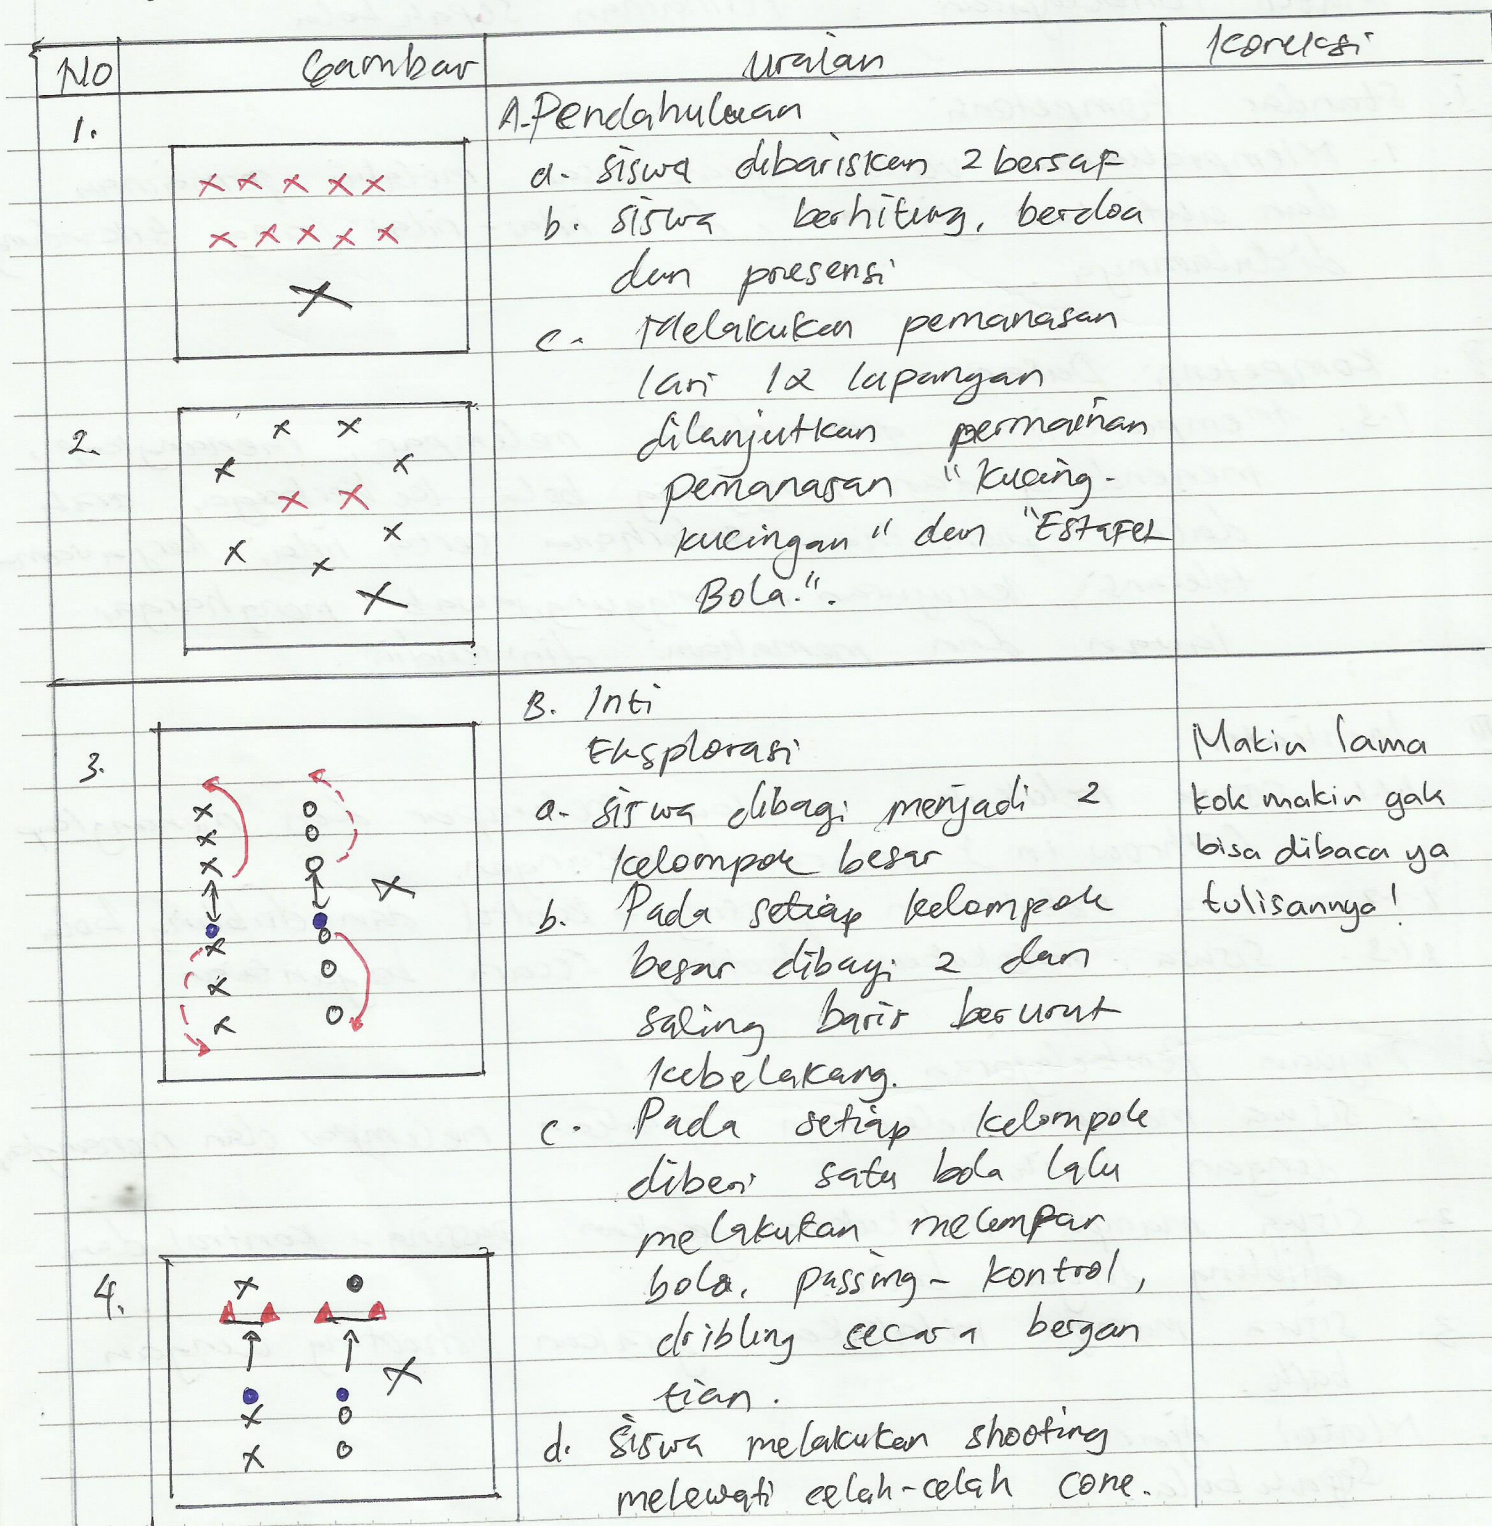 No Gambar Uraian Koreksi
1.
A. Pendahuluan
a. siswa dibariskan 2 bersaf
b. siswa berhitung, berdoa
dan presensi
c. Melakukan pemanasan
lari 1x lapangan
2.
dilanjutkan permainan
pemanasan "kucing-
kucingan" dan "Estafet
Bola.".
B. Inti
3.
Eksplorasi
a. siswa dibagi menjadi 2
kelompok besar
b. Pada setiap kelompok
besar dibagi 2 dan
saling baris berurut
kebelakang.
c. Pada setiap kelompok
diberi satu bola lalu
melakukan melempar
4.
bola, passing - kontrol,
dribling secara bergan
tian.
d. siswa melakukan shooting
melewati celah-celah cone.
Makin lama
kok makin gak
bisa dibaca ya
tulisannya!